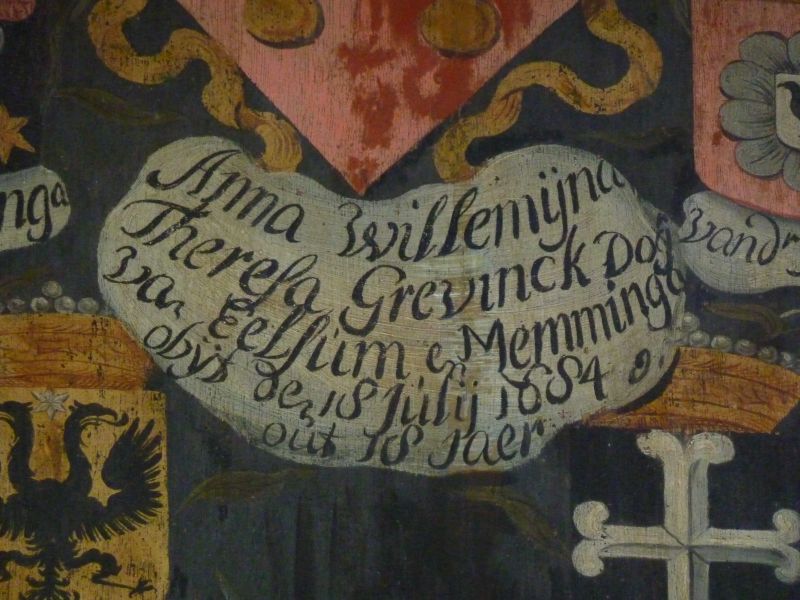 Anna Willemijna
Theresa Grevinck Dog
van Eelsum en Memminga
obijt den 18 Julij 1684
out 18 jaer
nga
vand